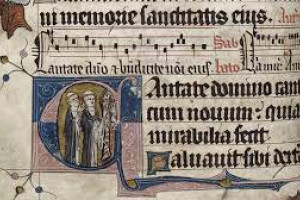 ni memorie sanctitatis eius. Ant
Sab
Cantate dño
eius. bato
Cantate domino cant
cum nouum: quia
mirabilia fecit
Saluauit sibi dext